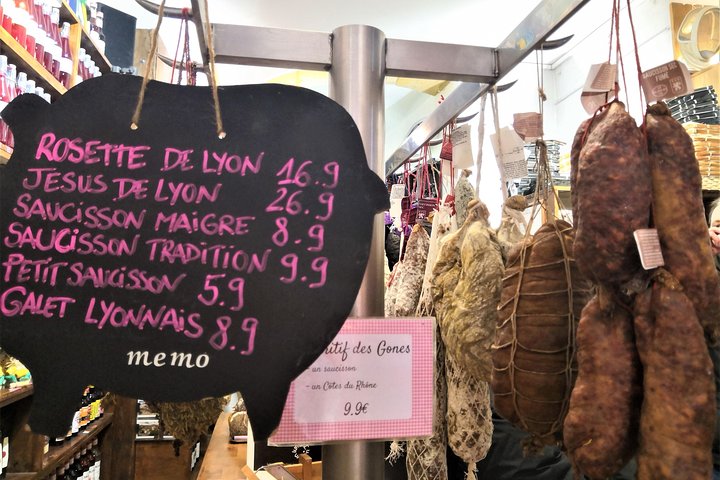 ROSETTE DE LYON 16.9
JESUS DE LYON 26.9
SAUCISSON MAIGRE 8.9
SAUCISSON TRADITION 9.9
PETIT SAUCISSON 5.9
GALET LYONNAIS 8.9
memo
des Gones
- un saucisson
- un Côtes du Rhône
9.9€
FUMÉ